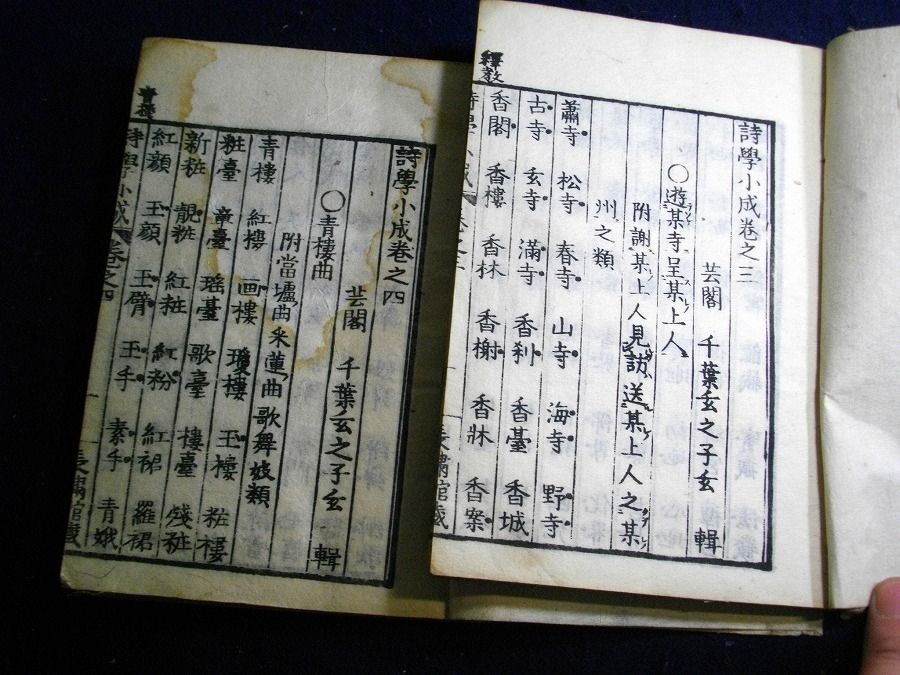 釋教
詩學小成卷之三
芸閣 千葉玄之子玄 輯
○遊某寺呈某上人
附謝某上人見訪送某上人之某
州之類
蕭寺 松寺 春寺 山寺 海寺 野寺
古寺 玄寺 滿寺 香刹 香臺 香城
香閣 香樓 香林 香榭 香牀 香案
青樓
詩學小成卷之四
芸閣 千葉玄之子玄 輯
○青樓曲
附當壚曲采蓮曲歌舞妓類
青樓 紅樓 画樓 瓊樓 玉樓 粧樓
粧臺 瑶臺 歌臺 樓臺 殘粧
新粧 靚粧 紅粧 紅粉 紅裙 羅裙
紅顔 玉顔 玉臂 玉手 素手 青娥
詩學小成 卷之四 一 長嘯館藏